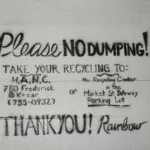 Please NO DUMPING!
TAKE YOUR RECYCLING TO:
H.A.N.C.
780 Frederick
@ Kezar
(755-0932)
or
the Recycling Center
in the
Market St. Safeway
Parking Lot
THANK YOU! Rainbow